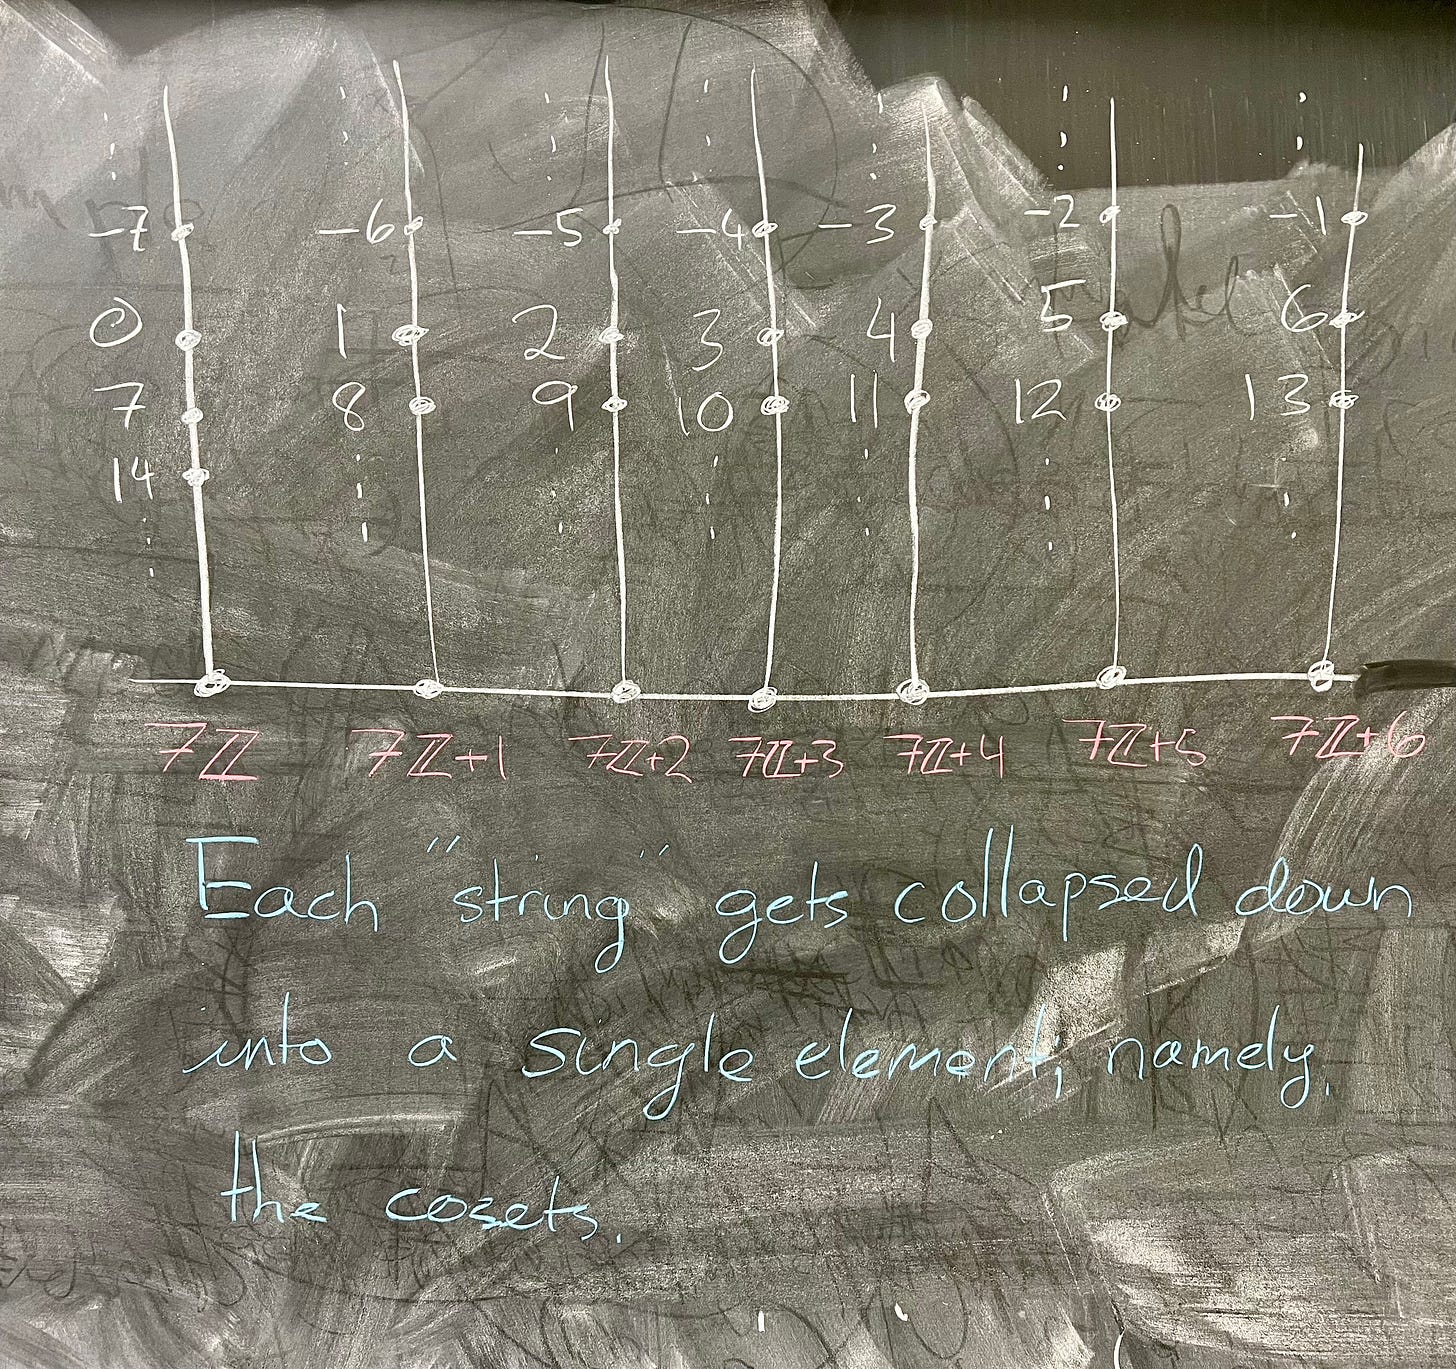 -7 -6 -5 -4 -3 -2 -1
0 1 2 3 4 5 6
7 8 9 10 11 12 13
14
7ℤ 7ℤ+1 7ℤ+2 7ℤ+3 7ℤ+4 7ℤ+5 7ℤ+6
Each "string" gets collapsed down
into a single element, namely,
the cosets.